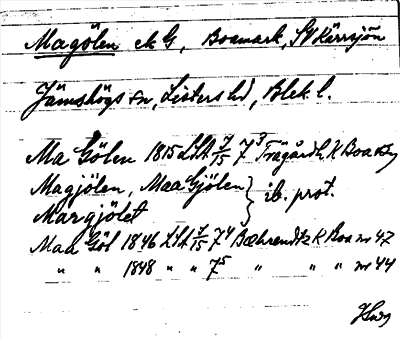 Magölen ek G, Boamark, St Kärrsjön
Jämshögs sn, Listers hd, Blek. l.
Ma Gölen 1815 LSA 7/15 7³ Trägårdh K Boa
Magjölen, Maa Gjölen } ib. prot.
Margjölet
Maa Göl 1846 LSA 7/15 7⁴ Bæhrendtz K Boa nr 47
" " 1848 " " 7⁵ " " " nr 44